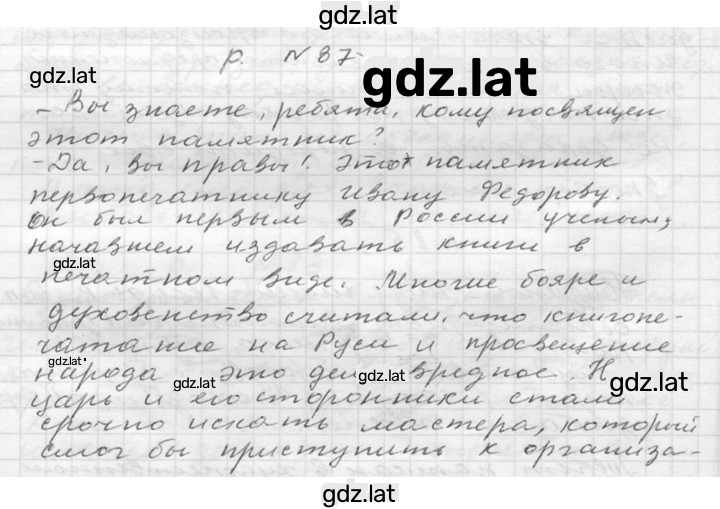 gdz.lat
р. №87
gdz.lat
gdz.lat
- Вы знаете, ребята, кому посвящен
этот памятник?
- Да, вы правы! Этот памятник
первопечатнику Ивану Федорову.
Он был первым в России ученым,
начавшем издавать книги в
gdz.lat
печатном виде. Многие бояре и
духовенство считали, что книгопе-
чатание на Руси и просвещение
gdz.lat
народа это вредное. Н
gdz.lat
gdz.lat
gdz.lat
царь и его сторонники стали
срочно искать мастера, который
смог бы приступить к организа-
gdz.lat